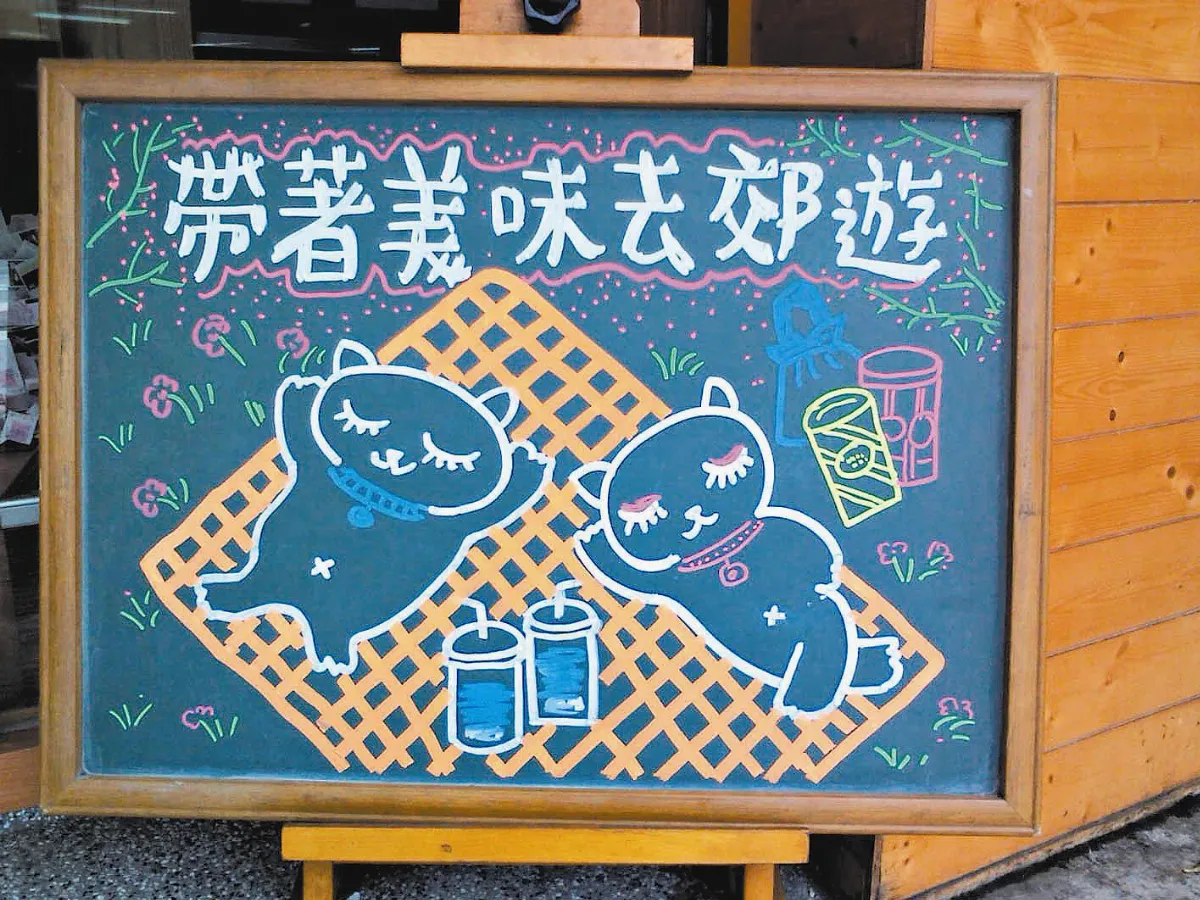 帶著美味去郊遊